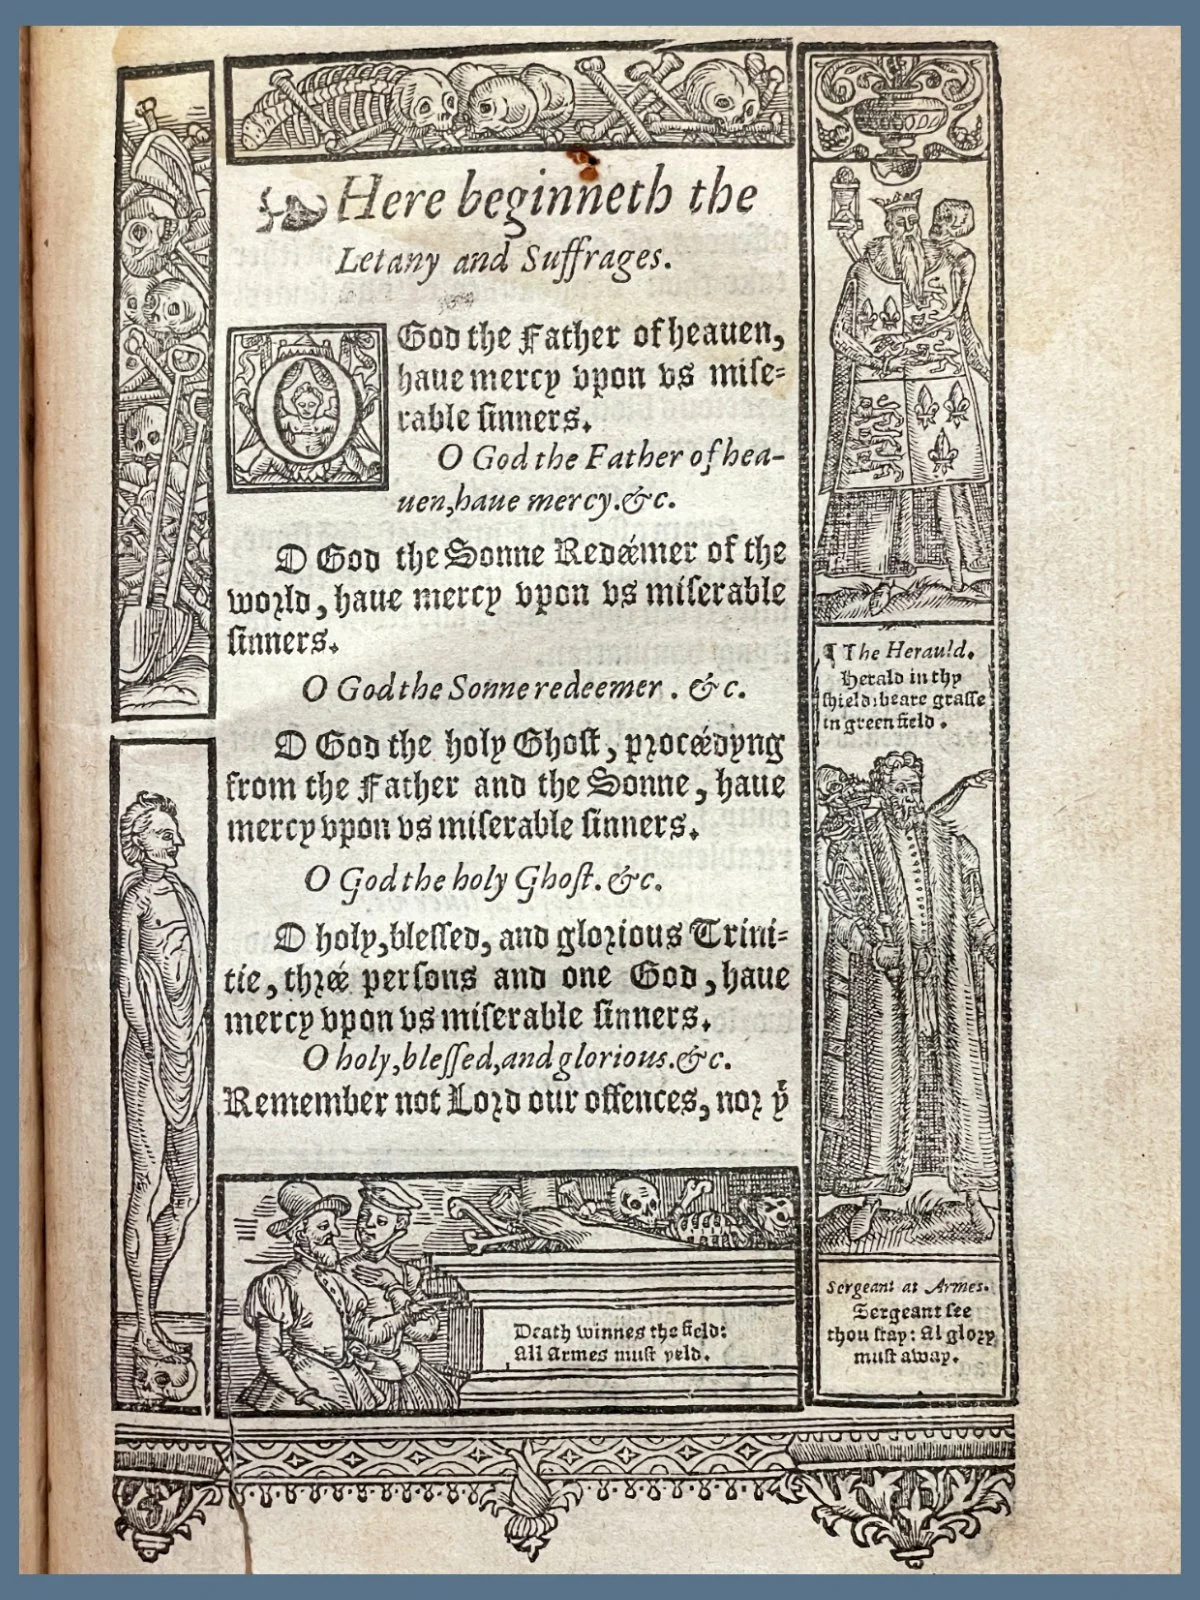 Here beginneth the
Letany and Suffrages.
O God the Father of heauen,
haue mercy vpon vs mise=
rable sinners.
O God the Father of hea-
uen,haue mercy.&c.
O God the Sonne Redéemer of the
world, haue mercy vpon vs miserable
sinners.
O God the Sonne redeemer. &c.
O God the holy Ghost, procéedyng
from the Father and the Sonne, haue
mercy vpon vs miserable sinners.
O God the holy Ghost. &c.
O holy, blessed, and glorious Trini=
tie, thrée persons and one God, haue
mercy vpon vs miserable sinners.
O holy,blessed,and glorious.&c.
Remember not Lord our offences, nor yͤ
¶ The Herauld.
Herald in thy
shield: beare grasse
in green field.
Sergeant at Armes.
Sergeant see
thou stay: Al glory
must away.
Death winnes the field:
All Armes must yeld.